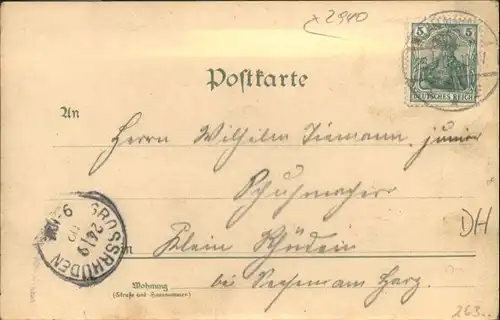 x 2940
5 5
DEUTSCHES REICH
Postkarte
An
Herrn Wilhelm Tiemann, junior
Schuhmacher
in Klein Rhüden
bei Seesen am Harz.
DH
GROSSRHÜDEN
24/9
Wohnung
(Straße und Hausnummer)
263..